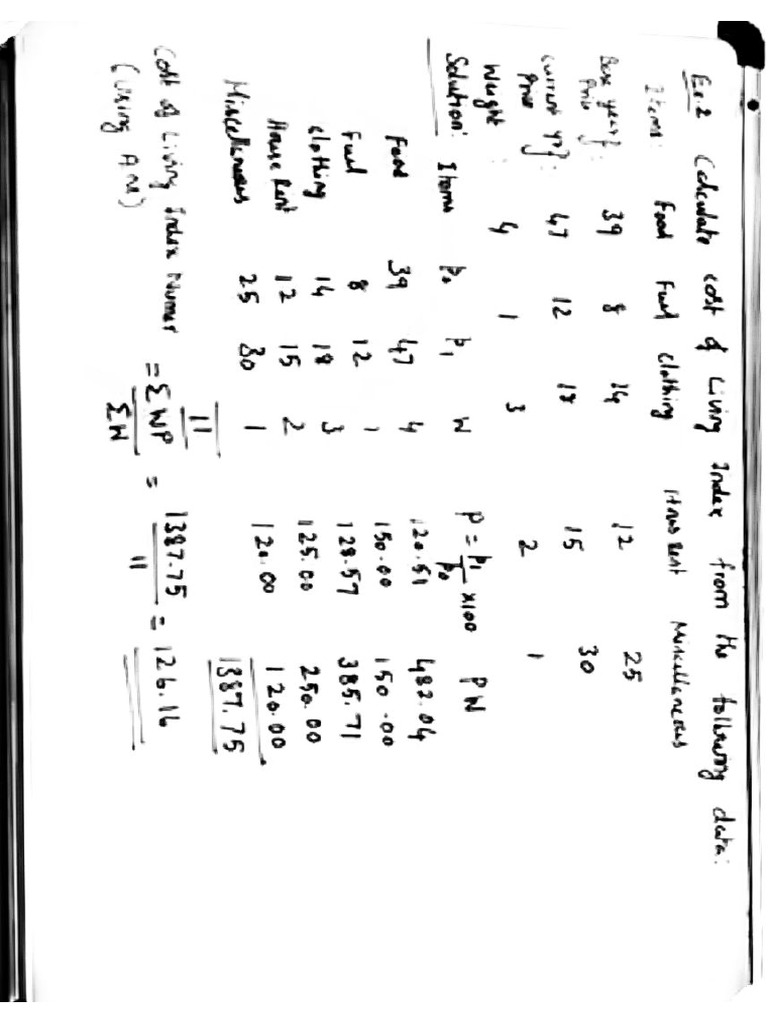 Ex.2 Calculate cost of Living Index from the following data:
Items: Food Fuel Clothing House Rent Miscellaneous
Base year Price }: 39 8 14 12 25
Current yr Price }: 47 12 18 15 30
Weight : 4 1 3 2 1
Solution: Items p₀ p₁ W P = p₁/p₀ x100 PW
Food 39 47 4 120.51 482.04
Fuel 8 12 1 150.00 150.00
Clothing 14 18 3 128.57 385.71
House Rent 12 15 2 125.00 250.00
Miscellaneous 25 30 1 120.00 120.00
11 1387.75
Cost of Living Index Numer = ΣWP/ΣW = 1387.75/11 = 126.16
(Using A.M.)